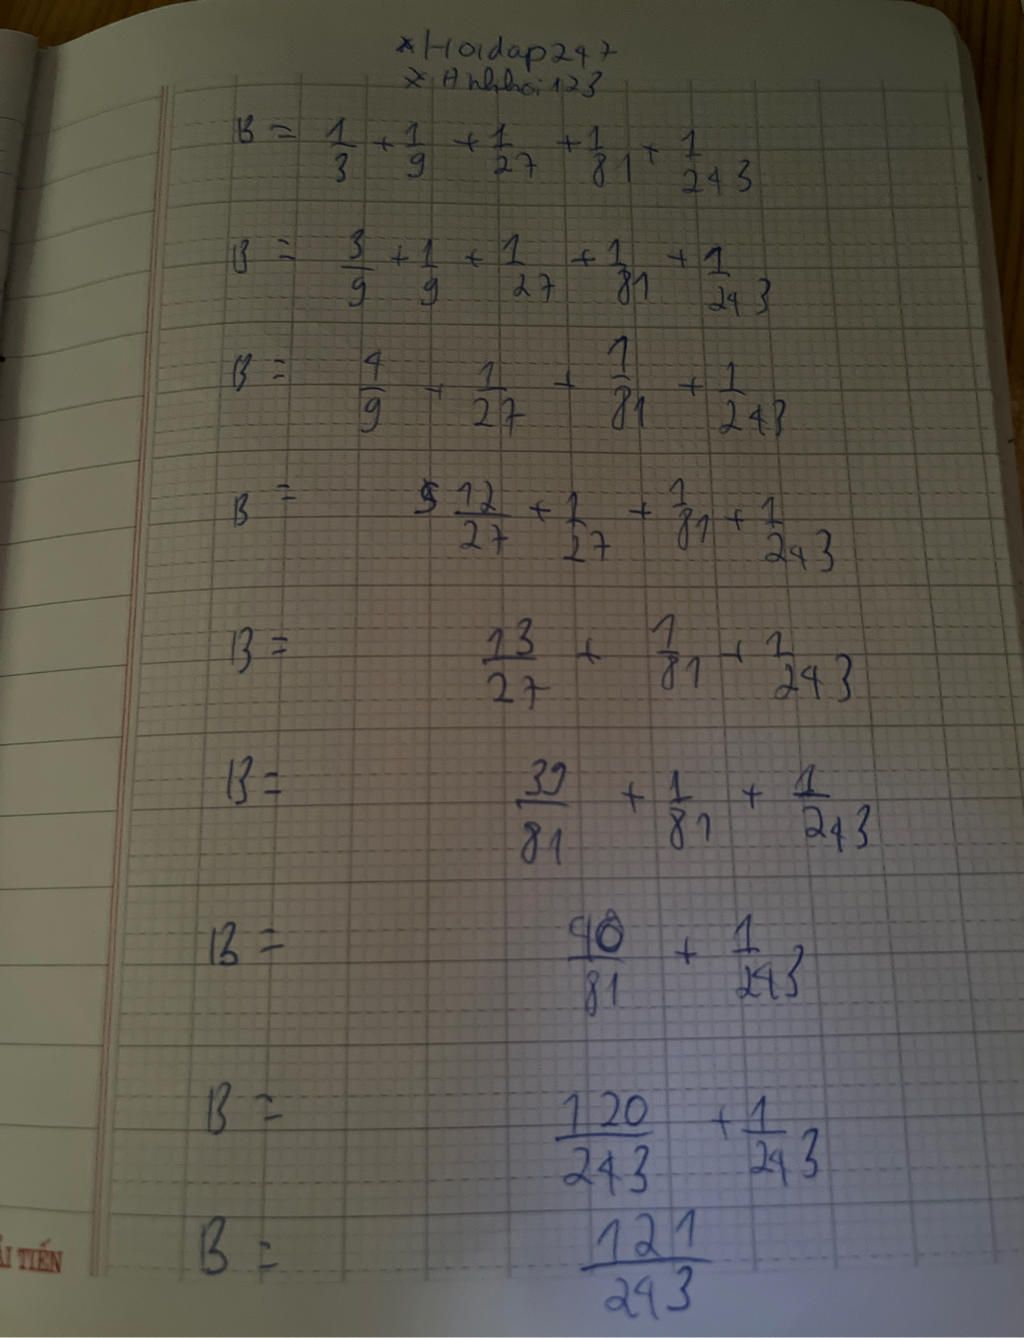 * Hoidap247
* Anhhoi123
B = 1/3 + 1/9 + 1/27 + 1/81 + 1/243
B = 3/9 + 1/9 + 1/27 + 1/81 + 1/243
B = 4/9 + 1/27 + 1/81 + 1/243
B = 12/27 + 1/27 + 1/81 + 1/243
B = 13/27 + 1/81 + 1/243
B = 39/81 + 1/81 + 1/243
B = 40/81 + 1/243
B = 120/243 + 1/243
B = 121/243
TIẾN